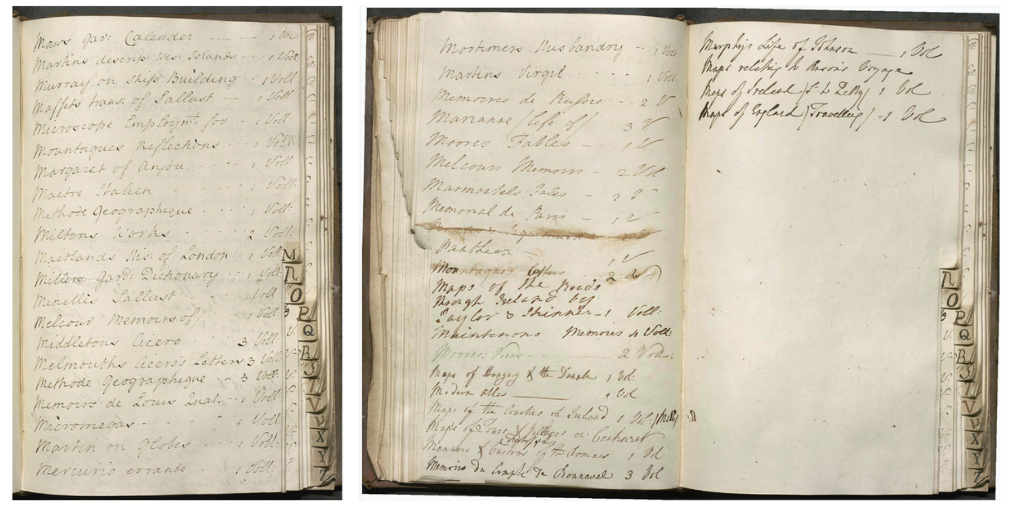 Maws Gar: Calender — 1 Vol:
Martins descrip: Wes: Islands 1 Voll:
Murray on Ship Building 1 Voll:
Maffets trans. of Sallust 1 Voll:
Microscope Employmt for 1 Voll:
Mountagues Reflections 1 Voll:
Margaret of Anjou 1 Voll:
Maitre Italien 1 Voll:
Methode Geographique 1 Voll:
Miltons Works 2 Voll:
Maitlands His: of London 1 Voll:
Millers Gar: Dichonary 1 Voll:
Minellis Sallust Voll:
Melcour Memoirs of Voll:
Middletons Cicero 3 Voll:
Melmouths Ciceros Letters 3 Voll:
Methode Geographique 3 Voll:
Memoirs de Louis Quat: 1 Voll:
Micromegas 1 Voll:
Martin on Globes 1 Voll:
Mercurio errante 1 Voll:
M
N
O
P
Q
R
S
V
X
Y
Mortimers Husbandry 1 Vol:
Martins Virgil 1 Voll:
Memoires de 2 V
Marianne (life of) 3 V
Moores Fables 1 V
Melcours Memoirs 2 Vol
Marmontels Tales 2 V
Memorial de Paris 1 V
Pantheon 1 V
2 V
Maps of the Roads
through Ireland by
Taylor & Skinner 1 Voll:
Maintenons Memoirs 4 Voll:
Moores 2 Voll:
Maps of Hungary & the Danube 1 Vol:
Modern Atlas 1 Vol
Maps of the Counties of Ireland 1 Vol: (Petty)
Maps of
Manners & Customs of the Romans 1 Vol
Memoirs du Comple de Bonneval 3 Vol
Murphy's Life of Johnson 1 Vol
Maps relating to Anson's Voyage
Maps of Ireland (Sr. W. Petty) 1 Vol
Maps of England (Travelling) 1 Vol
N
O
P
Q
R
S
V
X
Y